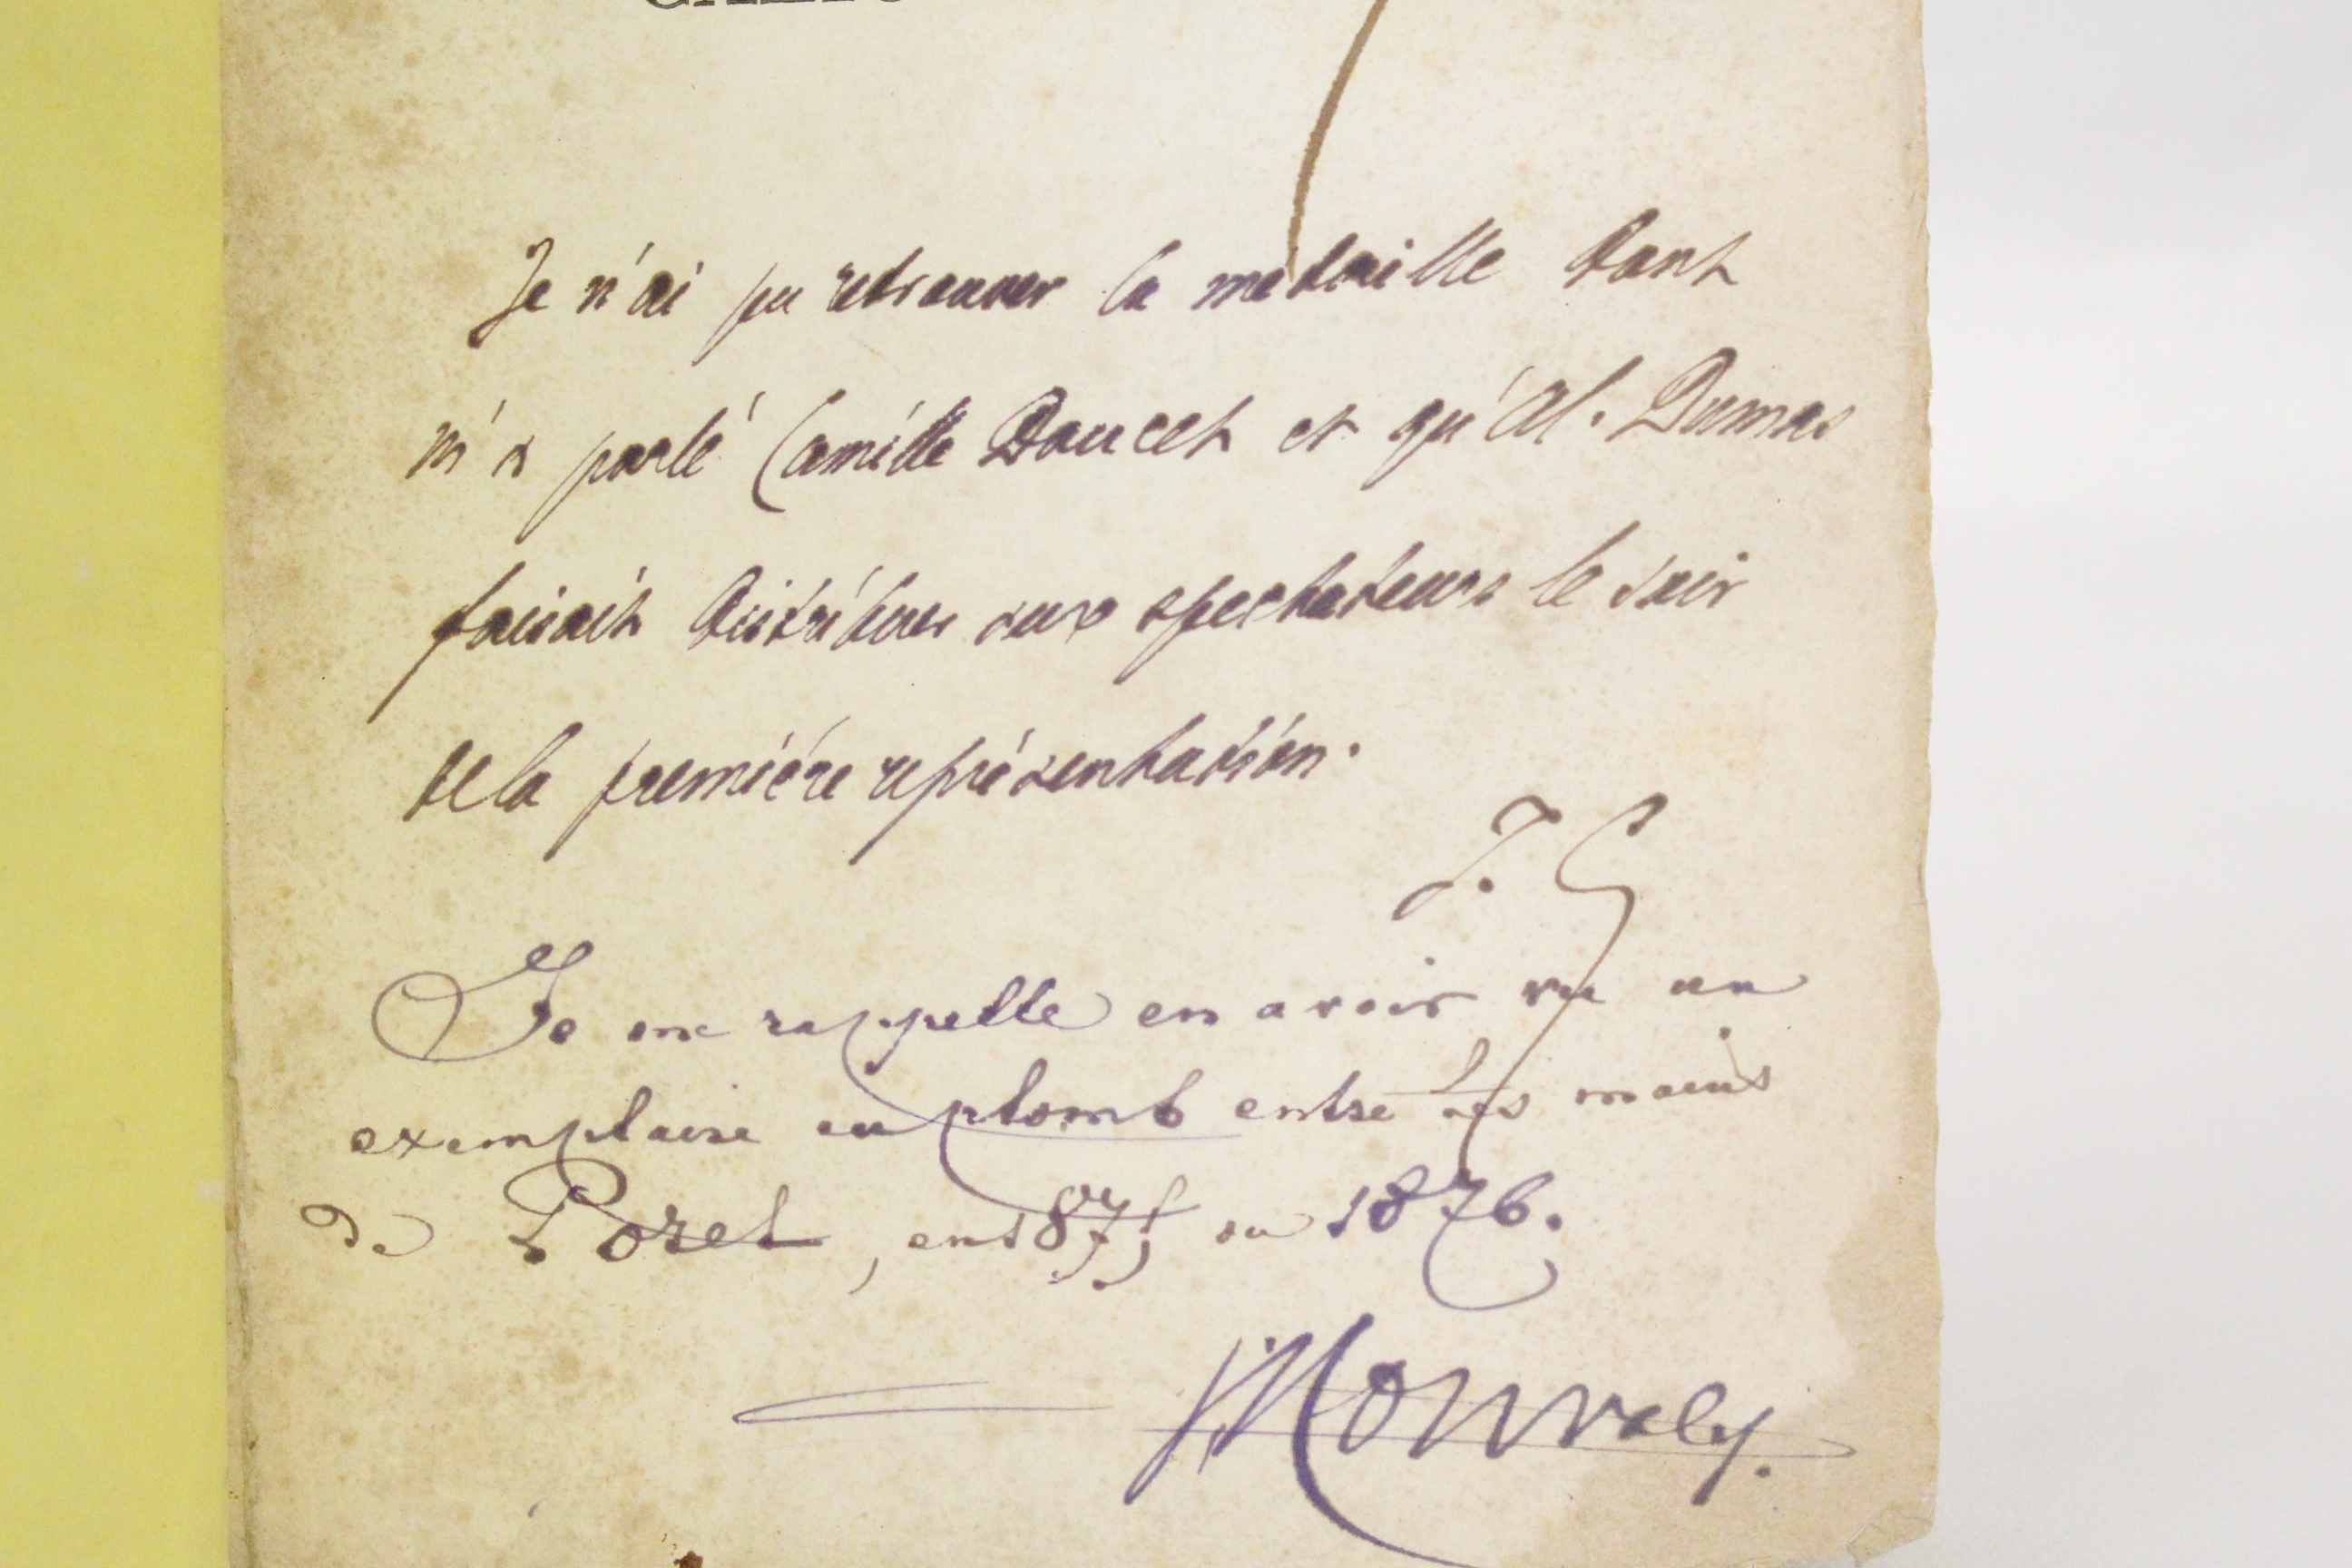 Je n'ai pu retrouver la médaille dont
m'a parlé Camille Doucet et qu'Al. Dumas
faisait distribuer aux spectateurs le soir
de la première représentation.
J. C
Je me rappelle en avoir vu un
exemplaire en plomb entre les mains
de Porel, en 1875 ou 1876.
Monvaly.